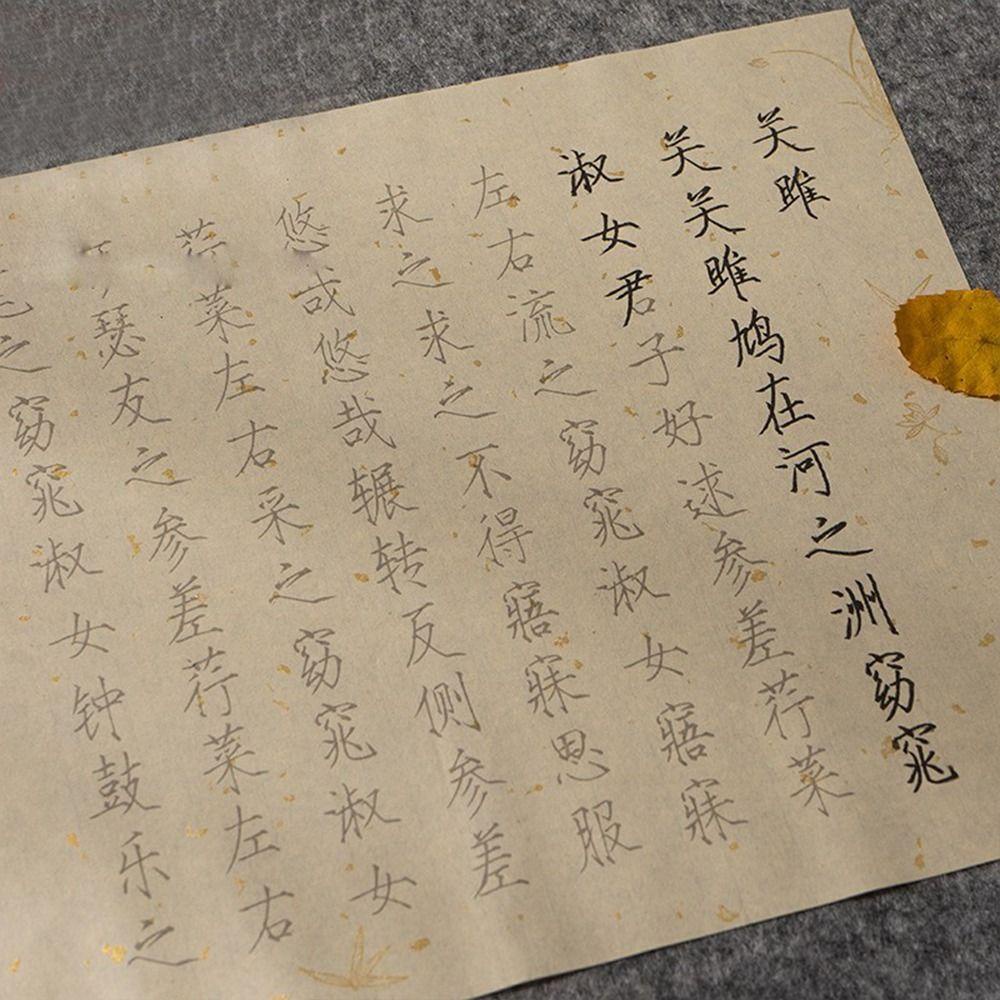 关雎
关关雎鸠在河之洲窈窕
淑女君子好逑参差荇菜
左右流之窈窕淑女寤寐
求之求之不得寤寐思服
悠哉悠哉辗转反侧参差
荇菜左右采之窈窕淑女
瑟友之参差荇菜左右
之窈窕淑女钟鼓乐之